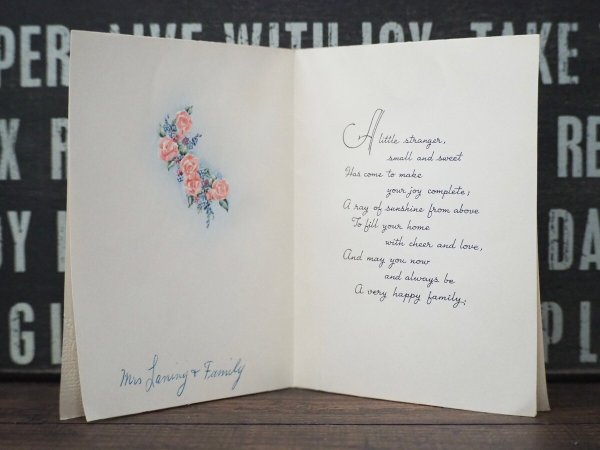 PER LIVE WITH JOY, TAKE
X
RE
OY
DA
G
PL
Mrs Laning & Family
A little stranger,
small and sweet
Has come to make
your joy complete;
A ray of sunshine from above
To fill your home
with cheer and love,
And may you now
and always be
A very happy family;